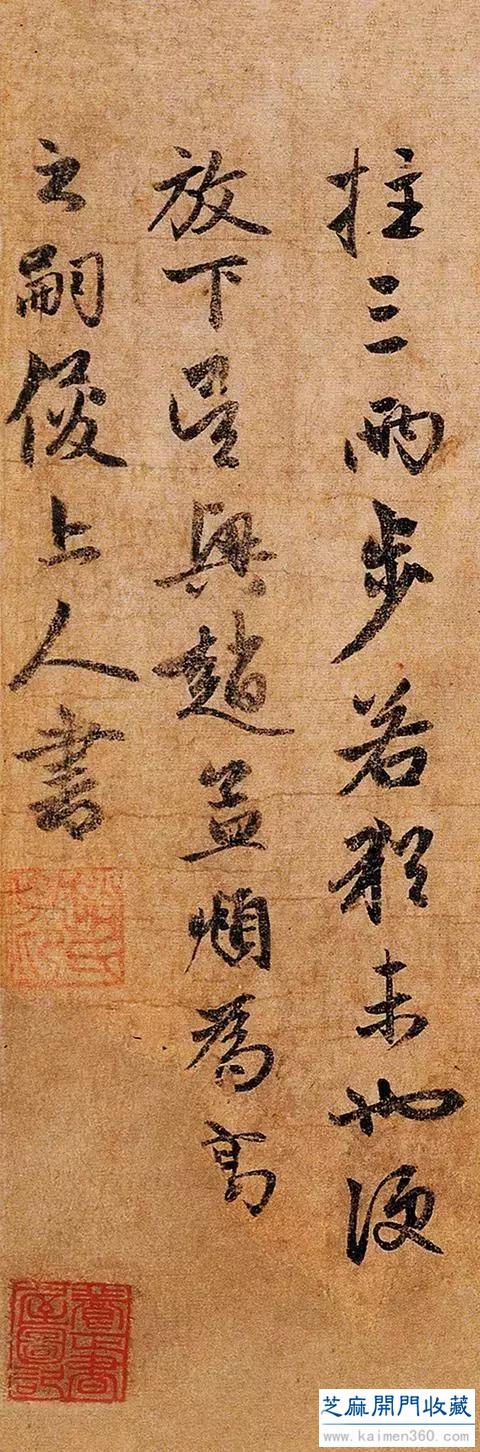 拄三兩步若猶未也須
放下吳興趙孟頫為高
之嗣俊上人書
芝麻開門收藏
www.kaimen360.com